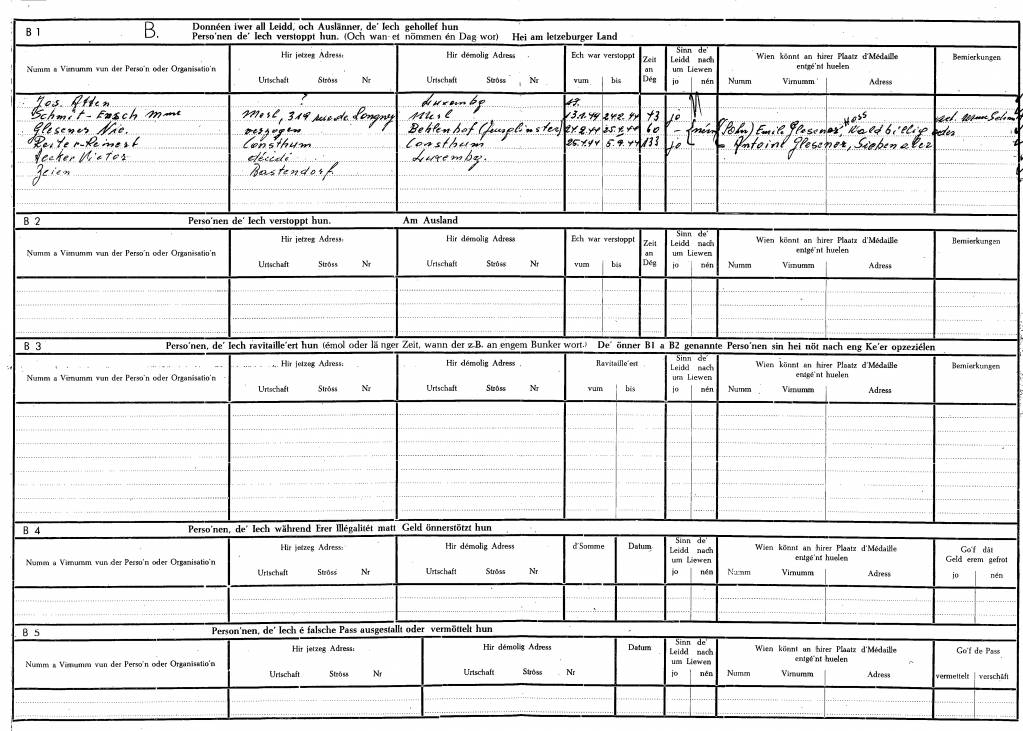 B 1
B.
Donnéen iwer all Leidd, och Auslänner, de' Iech gehollef hun
Perso'nen de' Iech verstoppt hun. (Och wan et nömmen én Dag wor) Hei am letzeburger Land
Numm a Virnumm vun der Perso'n oder Organisatio'n
Hir jetzeg Adress:
Urtschaft Ströss Nr
Hir démolig Adress:
Urtschaft Ströss Nr
Ech war verstoppt
vum bis
Zeit an Dég
Sinn de' Leidd nach um Liewen
jo nén
Wien könnt an hirer Plaatz d'Médaille entgé'nt huelen
Numm Virnumm Adress
Bemierkungen
Jos. Atten ? Luxembg
Schmit-Ensch Mme Merl, 319 rue de Longwy Merl 13.1.44 24.2.44 43 jo
Glesener Nic. verzogen 60 - Emile Glesener, Waldbillig
Hoss
Reiter-Reinert Consthum Consthum 25.4.44 5.9.44 133 jo Antoine Glesener, Siebenaler
Victor décédé Luxembg.
Zeien Bastendorf
B 2
Perso'nen de' Iech verstoppt hun. Am Ausland
Numm a Virnumm vun der Perso'n oder Organisatio'n
Hir jetzeg Adress:
Urtschaft Ströss Nr
Hir démolig Adress
Urtschaft Ströss Nr
Ech war verstoppt
vum bis
Zeit an Dég
Sinn de' Leidd nach um Liewen
jo nén
Wien könnt an hirer Plaatz d'Médaille entgé'nt huelen
Numm Virnumm Adress
Bemierkungen
B 3
Perso'nen, de' Iech ravitaille'ert hun (émol oder lä nger Zeit, wann der z.B. an engem Bunker wort.) De' önner B1 a B2 genannte Perso'nen sin hei nöt nach eng Ke'er opzeziélen
Numm a Virnumm vun der Perso'n oder Organisatio'n
Hir jetzeg Adress:
Urtschaft Ströss Nr
Hir démolig Adress
Urtschaft Ströss Nr
Ravitaille'ert
vum bis
Sinn de' Leidd nach um Liewen
jo nén
Wien könnt an hirer Plaatz d'Médaille entgé'nt huelen
Numm Virnumm Adress
Bemierkungen
B 4
Perso'nen, de' Iech während Erer Illégalitét matt Geld önnerstötzt hun
Numm a Virnumm vun der Perso'n oder Organisatio'n
Hir jetzeg Adress:
Urtschaft Ströss Nr
Hir démolig Adress
Urtschaft Ströss Nr
d'Somme
Datum
Sinn de' Leidd nach um Liewen
jo nén
Wien könnt an hirer Plaatz d'Médaille entgé'nt huelen
Numm Virnumm Adress
Go'f dât Geld erem gefrot
jo nén
B 5
Person'nen, de' Iech é falsche Pass ausgestallt oder vermöttelt hun
Numm a Virnumm vun der Perso'n oder Organisatio'n
Hir jetzeg Adress:
Urtschaft Ströss Nr
Hir démolig Adress
Urtschaft Ströss Nr
Datum
Sinn de' Leidd nach um Liewen
jo nén
Wien könnt an hirer Plaatz d'Médaille entgé'nt huelen
Numm Virnumm Adress
Go'f de Pass
vermettelt verschäft